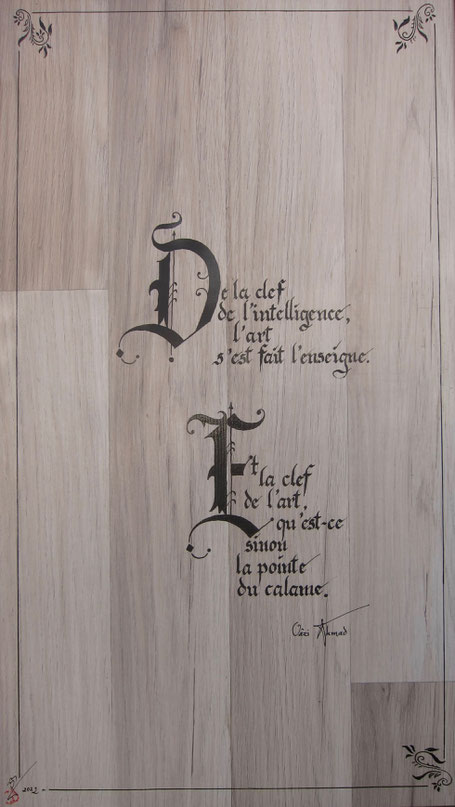 De la clef
de l'intelligence,
l'art
s'est fait l'enseigne.
Et
la clef
de l'art,
qu'est-ce
sinon
la pointe
du calame.
Ahmad